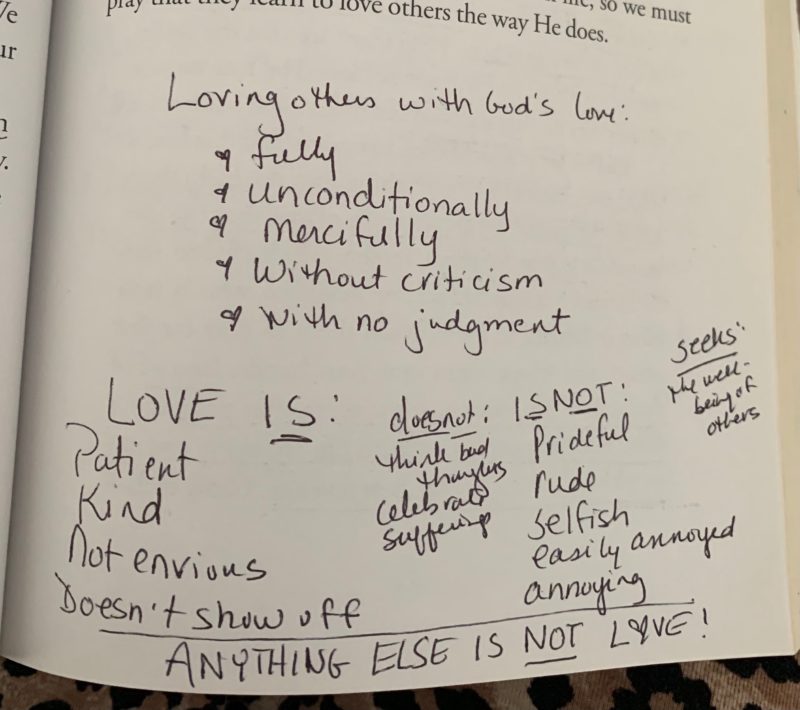 Ve
ur
n
y.
play that they learn to love others the way He does.
me, so we must
Loving others with God's love:
fully
unconditionally
Mercifully
Without criticism
With no judgment
LOVE IS:
Patient
Kind
Not envious
Doesn't show off
does not:
think bad
thoughts
celebrate
suffering
IS NOT:
Prideful
rude
selfish
easily annoyed
annoying
seeks:
the well-
being of
others
ANYTHING ELSE IS NOT LOVE!